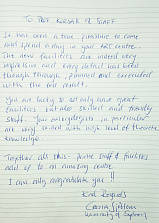 TO PROF KESSAR & STAFF
It has been a true pleasure to come
and spend a day in your ART centre.
The new facilities are indeed very
impressive and every detail has been
thought through, planned and executed
with the best result.
You are lucky to not only have great
facilities but also skilled and friendly
staff. Your embryologists in particular
are very skilled with high level of theoretic
knowledge.
Together all this - fame staff & facilities
add up to an amazing centre.
I can only congratulate you!!
Kind Regards
University of